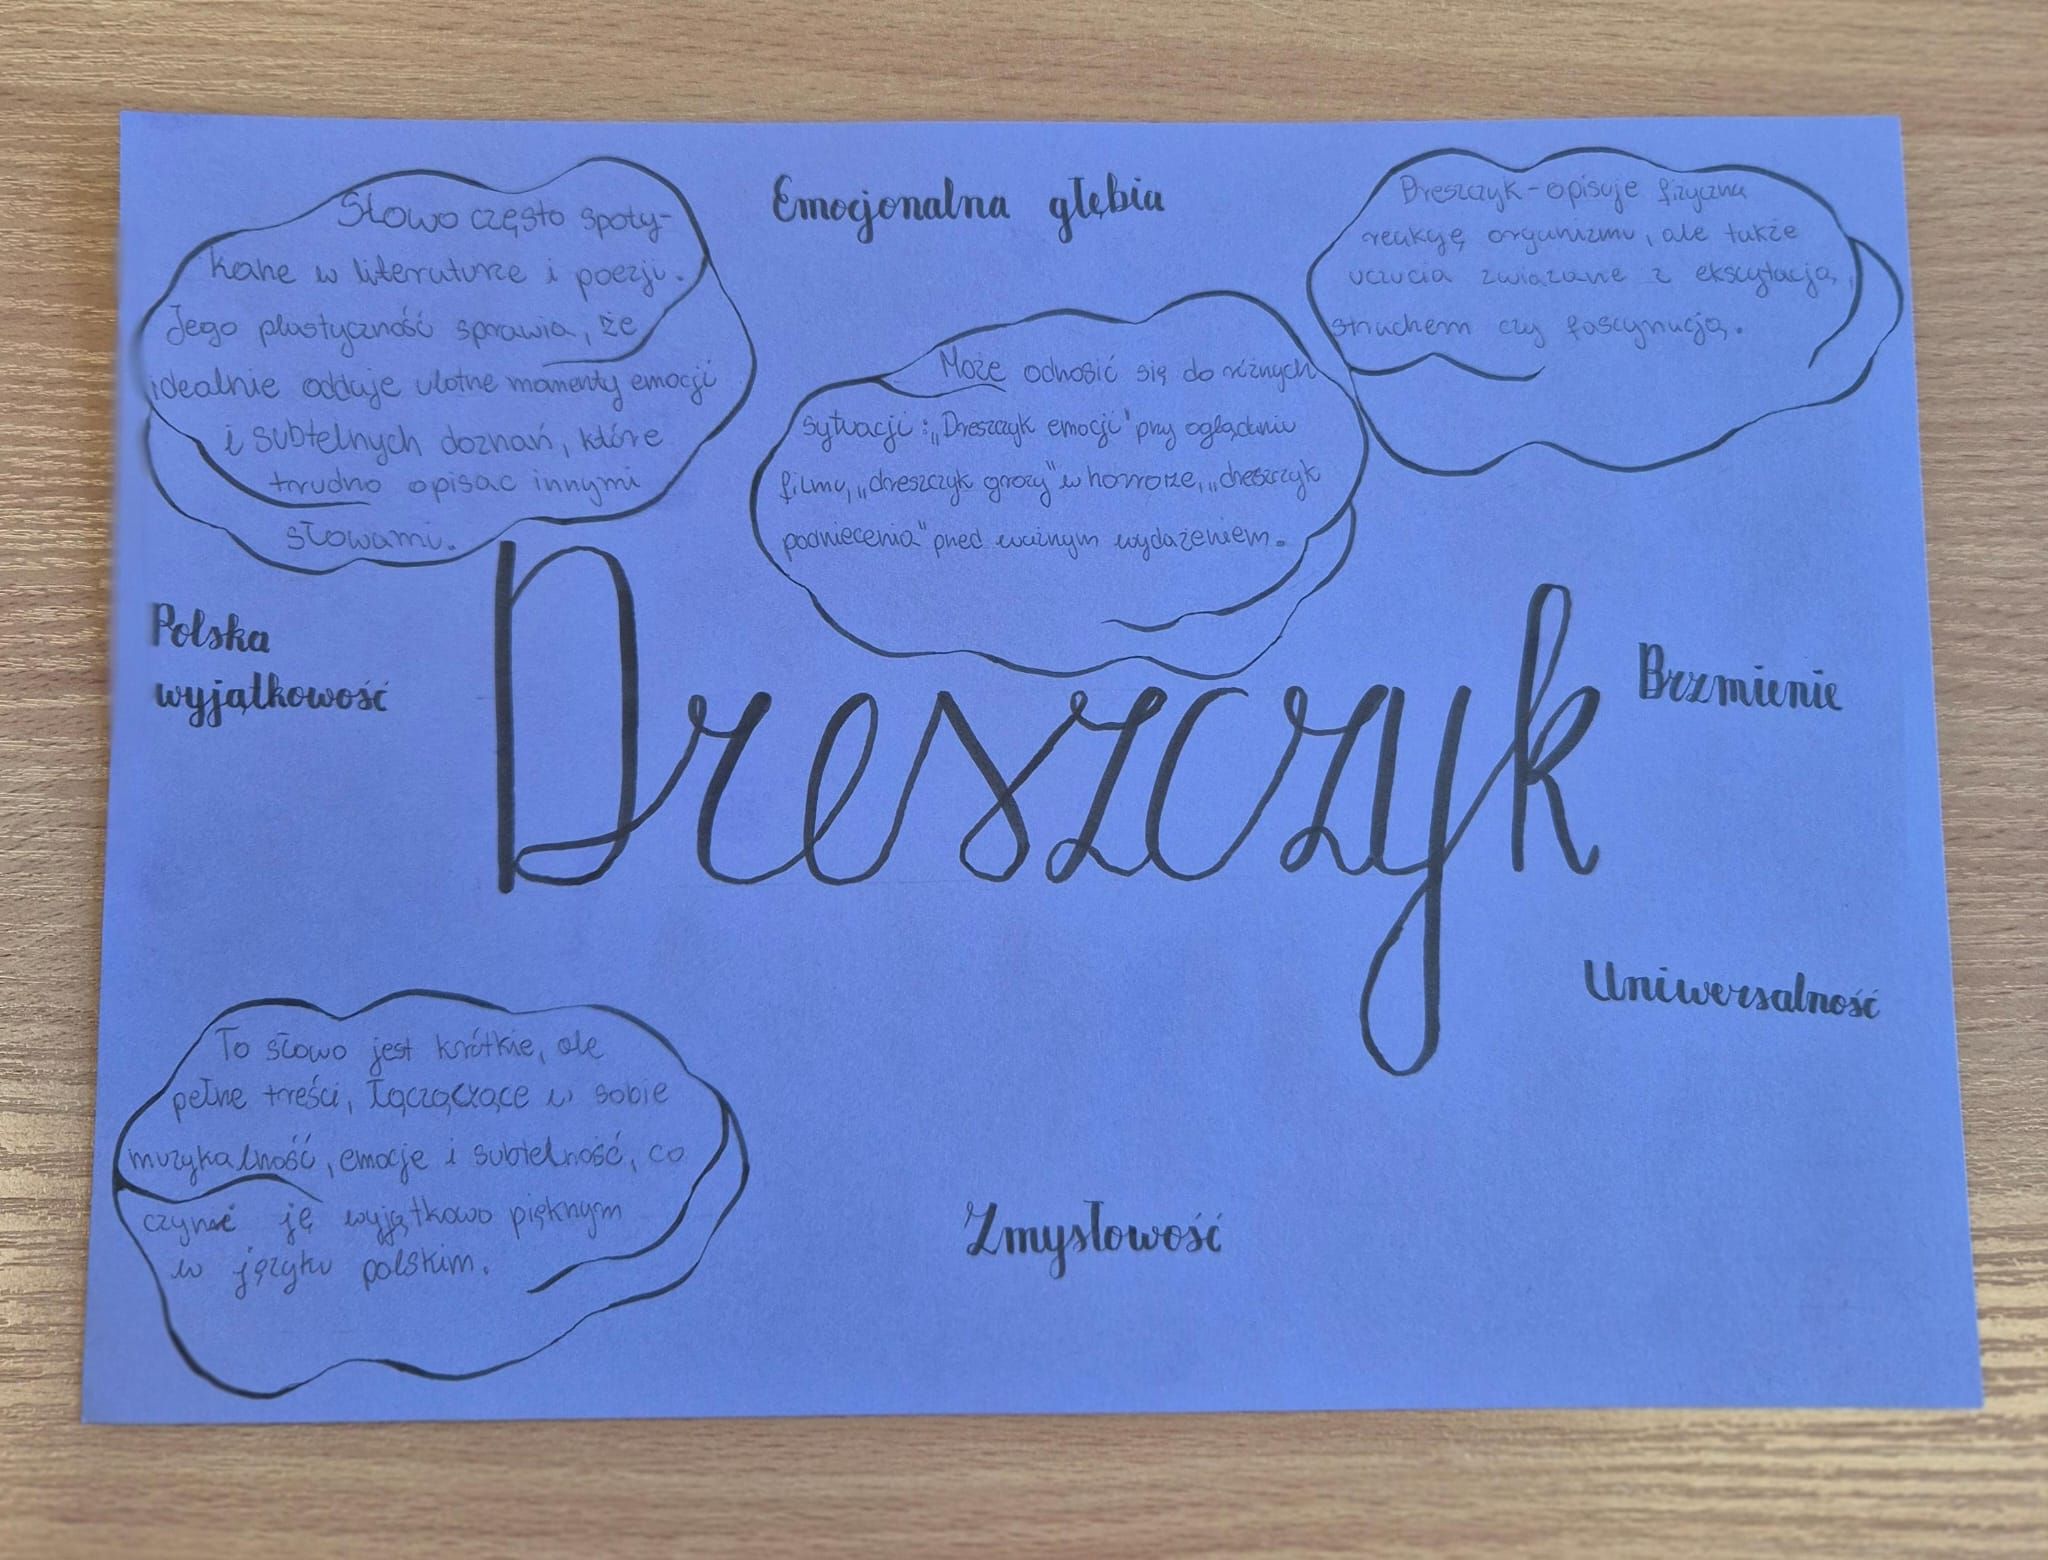 Słowo często spoty-
kane w literaturze i poezji.
Jego plastyczność sprawia, że
idealnie oddaje ulotne momenty emocji
i subtelnych doznań, które
trudno opisac innymi
słowami.
Emocjonalna głębia
Dreszczyk - opisuje fizyczna
reakcję organizmu, ale także
uczucia związane z ekscytacją,
strachem czy fascynacją.
Może odnosić się do różnych
sytuacji: „Dreszczyk emocji" przy oglądaniu
filmu, „dreszczyk grozy" w horrorze, „dreszczyk
podniecenia" przed ważnym wydażeniem.
Polska
wyjątkowość
Dreszczyk
Brzmienie
Uniwersalność
To słowo jest krótkie, ale
pełne treści, łącząćzące w sobie
muzykalność, emocje i subtelność, co
czyni ję wyjątkowo pięknym
w języku polskim.
Zmysłowość